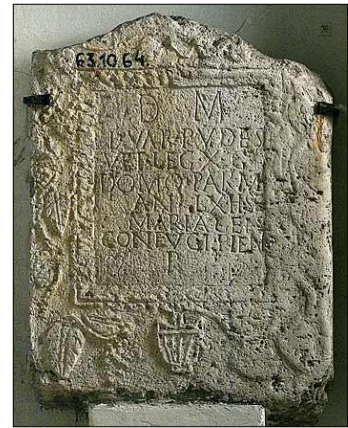 63.10.64.
D M
L VAR PVDES
VET LEG X
DOMO PARM
AN LXII
MARIA
CONIVGI